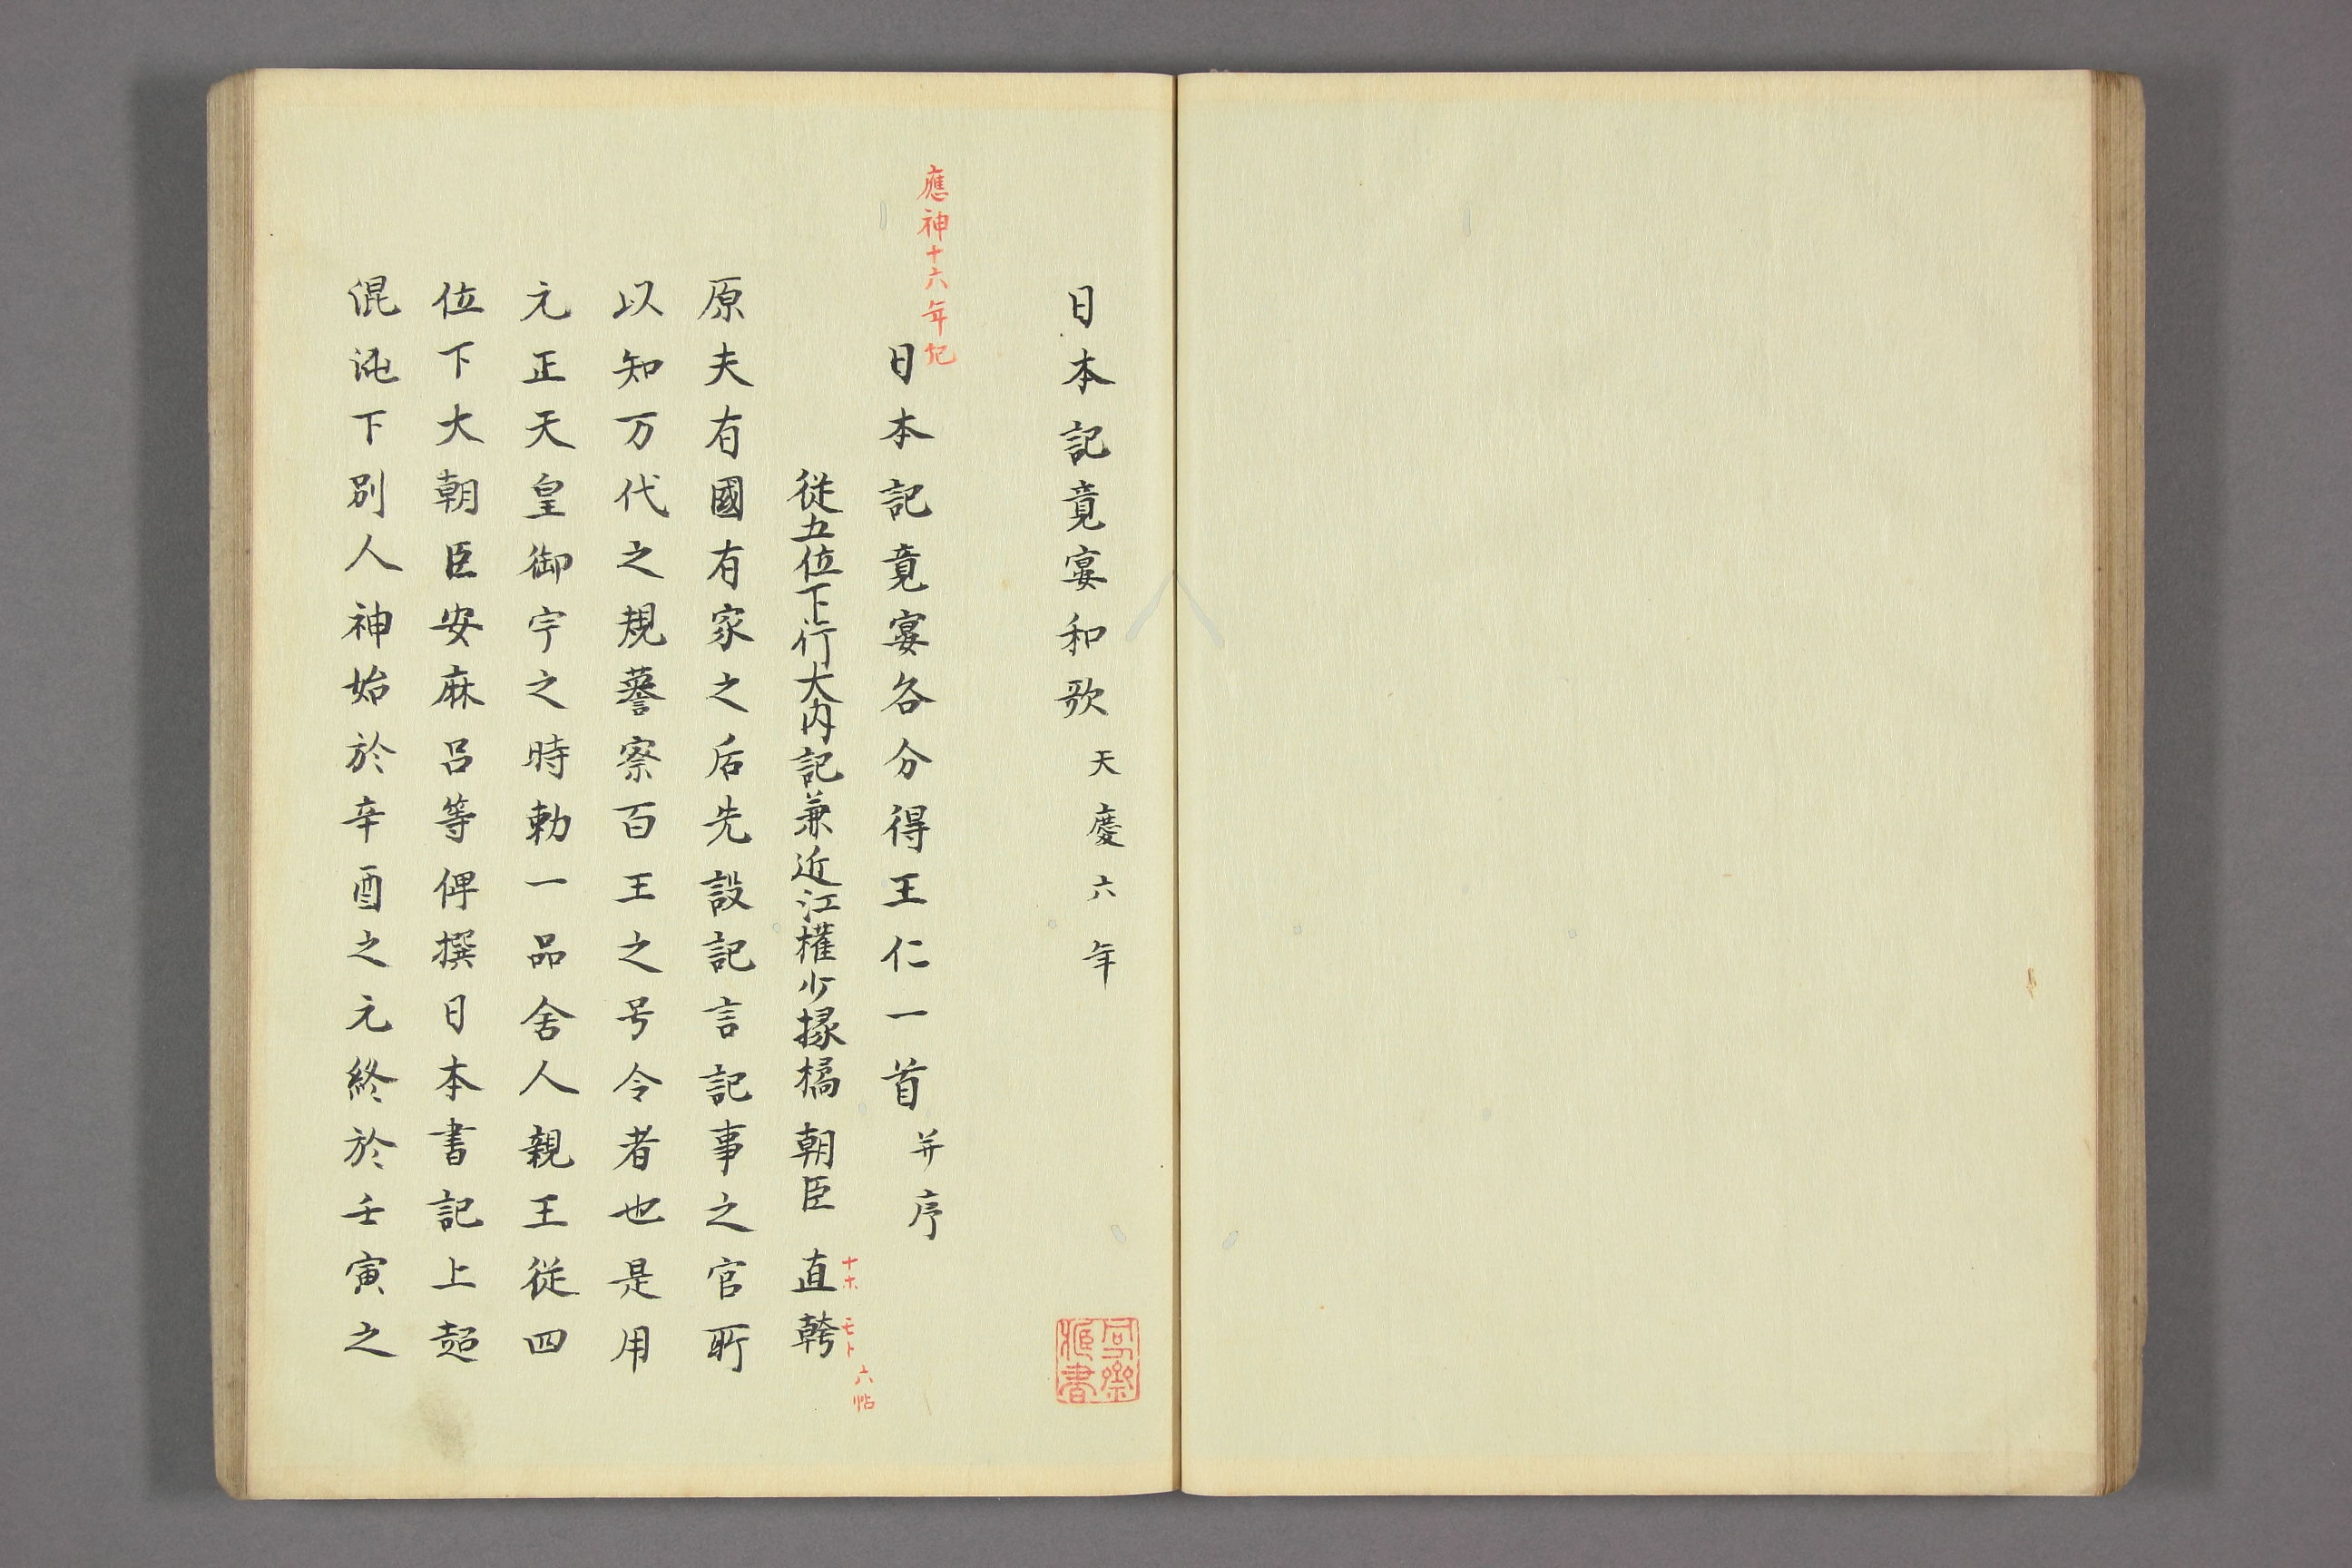 日本記竟宴和歌 天慶六年
應神十六年紀
日本記竟宴各分得王仁一首 并序
從五位下行大内記兼近江權少掾橘朝臣直幹
ナホモト
六帖
原夫有國有家之后先設記言記事之官所
以知万代之規謩察百王之号令者也是用
元正天皇御宇之時勅一品舍人親王從四
位下大朝臣安麻呂等俾撰日本書記上起
混沌下別人神始於辛酉之元終於壬寅之